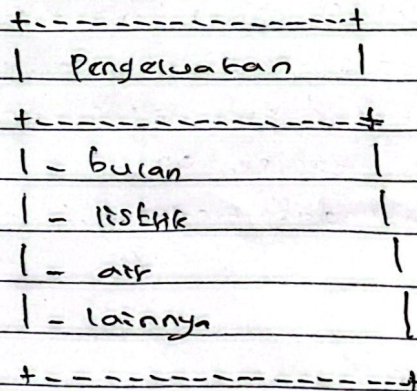 +-----------------+
| Pengeluaran |
+-----------------+
| - bulan |
| - listrik |
| - air |
| - lainnya |
+-----------------+